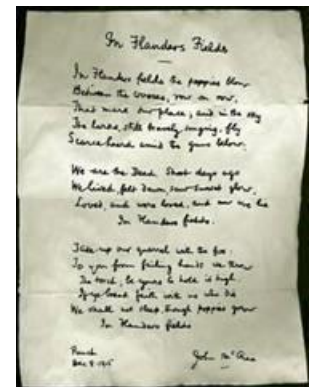 In Flanders Fields
In Flanders fields the poppies blow
Between the crosses, row on row,
That mark our place; and in the sky
The larks, still bravely singing, fly
Scarce heard amid the guns below.
We are the Dead. Short days ago
We lived, felt dawn, saw sunset glow,
Loved, and were loved, and now we lie
In Flanders fields.
Take up our quarrel with the foe:
To you from failing hands we throw
The torch; be yours to hold it high.
If ye break faith with us who die
We shall not sleep, though poppies grow
In Flanders fields
John McCrae